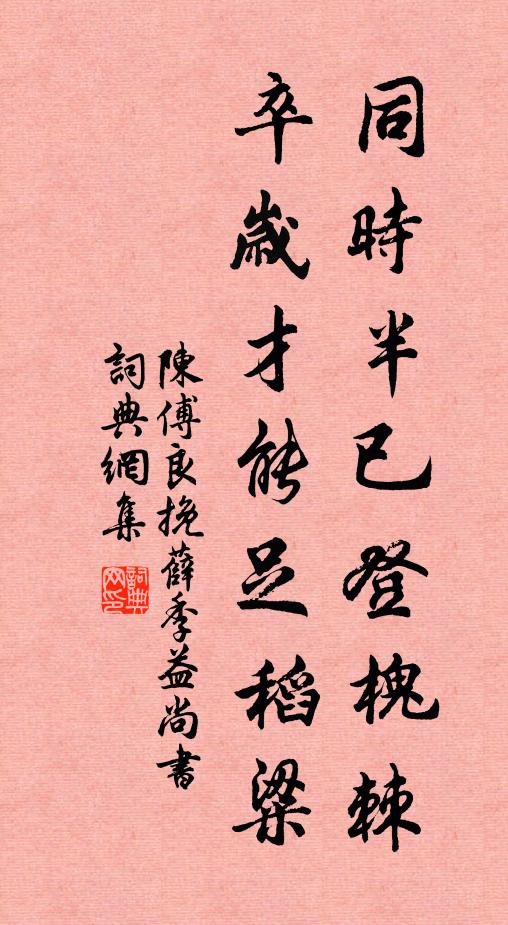 同時半已登槐棘
卒歲才能足稻粱
陳傅良挽薛季益尚書
詞典網集
詞典網印